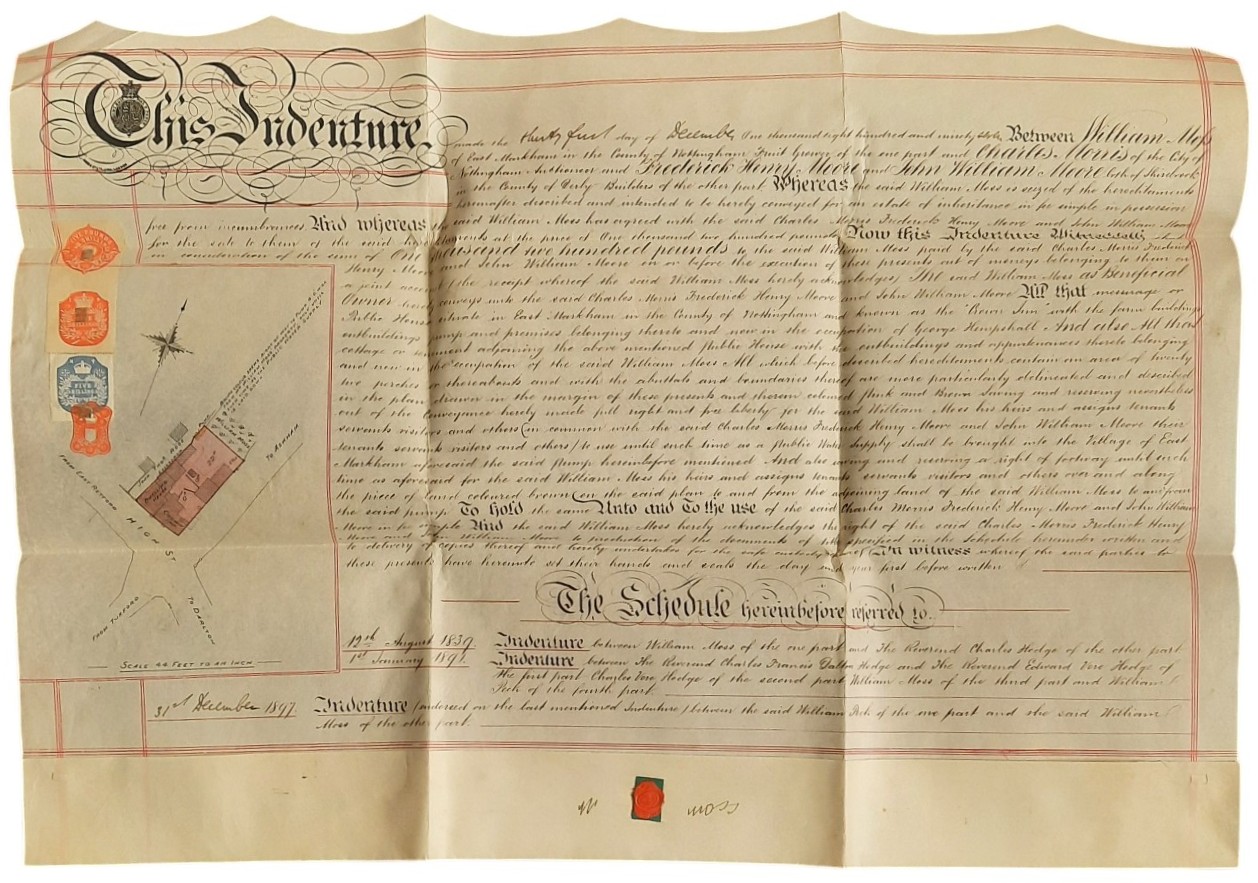 This Indenture
made the thirty first day of December One thousand eight hundred and ninety Between William Moss
of East Markham in the County of Nottingham Fruit Grower of the one part and Charles Morris of the City of
Nottingham Auctioneer and Frederick Henry Moore and John William Moore both of
in the County of Derby Builders of the other part Whereas the said William Moss is seized of the hereditaments
hereinafter described and intended to be hereby conveyed for an estate of inheritance in fee simple in possession
free from incumbrances And whereas the said William Moss has agreed with the said Charles Morris Frederick Henry Moore and John William Moore
for the sale to them of the said hereditaments at the price of One thousand two hundred pounds Now this Indenture Witnesseth
in consideration of the sum of One thousand two hundred pounds to the said William Moss paid by the said Charles Morris Frederick
Henry Moore and John William Moore on or before the execution of these presents out of moneys belonging to them on
a joint account (the receipt whereof the said William Moss hereby acknowledges) The said William Moss as Beneficial
Owner hereby conveys unto the said Charles Morris Frederick Henry Moore and John William Moore All that messuage or
Public House situate in East Markham in the County of Nottingham and known as the "Crown Inn" with the farm buildings
outbuildings pump and premises belonging thereto and now in the occupation of George Hempshall And also All that
cottage or tenement adjoining the above mentioned Public House with the outbuildings and appurtenances thereto belonging
and now in the occupation of the said William Moss All which before described hereditaments contain an area of twenty
two perches or thereabouts and with the abuttals and boundaries thereof are more particularly delineated and described
in the plan drawn in the margin of these presents and therein coloured Pink and Brown Saving and reserving nevertheless
out of the Conveyance hereby made full right and free liberty for the said William Moss his heirs and assigns tenants
servants visitors and others (in common with the said Charles Morris Frederick Henry Moore and John William Moore their
tenants servants visitors and others) to use until such time as a Public Water Supply shall be brought into the Village of East
Markham aforesaid the said Pump hereinbefore mentioned And also saving and reserving a right of footway until such
time as aforesaid for the said William Moss his heirs and assigns tenants servants visitors and others over and along
the piece of land coloured brown on the said plan to and from the adjoining land of the said William Moss to and from
the said pump To hold the same Unto and To the use of the said Charles Morris Frederick Henry Moore and John William
Moore in fee simple And the said William Moss hereby acknowledges the right of the said Charles Morris Frederick Henry
Moore and John William Moore to production of the documents of title specified in the Schedule hereunder written and
to delivery of copies thereof and hereby undertakes for the safe custody thereof In witness whereof the said parties to
these presents have hereunto set their hands and seals the day and year first before written
FIVE
SHILLINGS
FROM EAST RETFORD
HIGH ST
TO ASKHAM
FROM TUXFORD
TO DARLTON
SCALE 44 FEET TO AN INCH
The Schedule hereinbefore referred to.
12th August 1839 Indenture between William Moss of the one part and The Reverend Charles Hodge of the other part
1st January 1897 Indenture between The Reverend Charles Francis Dalton Hodge and The Reverend Edward Vere Hodge of
the first part Charles Vere Hodge of the second part William Moss of the third part and William
Peck of the fourth part
31st December 1897 Indenture (endorsed on the last mentioned Indenture) between the said William Peck of the one part and the said William
Moss of the other part
W Moss